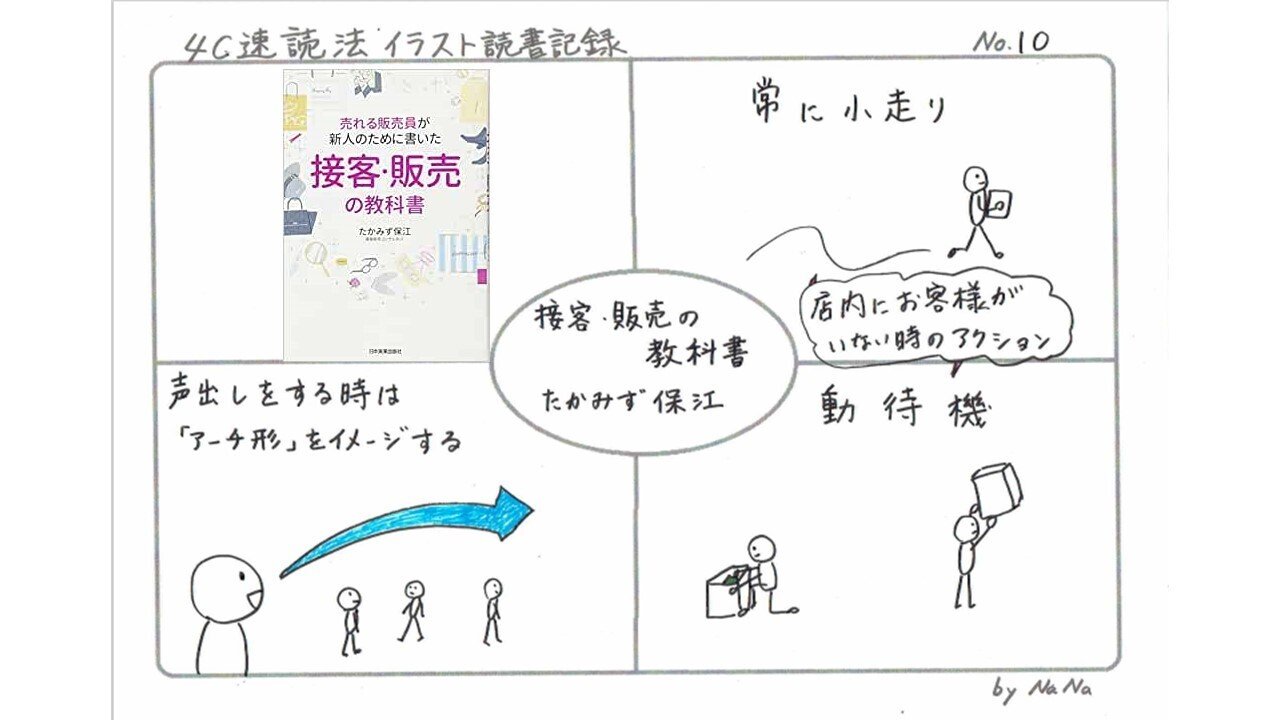 4C速読法 イラスト読書記録
No.10
売れる販売員が
新人のために書いた
接客・販売
の教科書
たかみず保江
日本実業出版社
常に小走り
店内にお客様が
いない時のアクション
接客・販売の
教科書
たかみず保江
声出しをする時は
「アーチ形」をイメージする
動待機
by NaNa